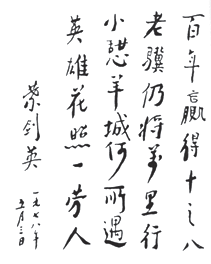 百年赢得十之八
老骥仍将萬里行
小憩羊城何所遇
英雄花照一劳人
葉剑英
一九七八年
五月三日